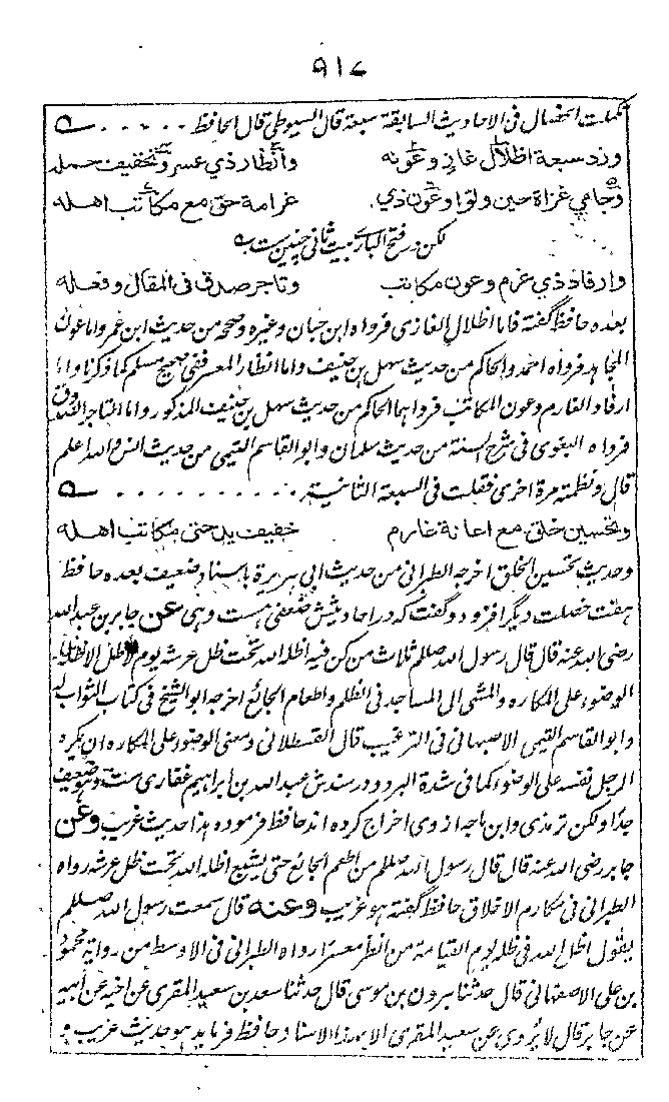 ٩١٧
تكملت الخصال فى الاحاديث السابقة سبعة قال السيوطى قال الحافظ
وزد سبعة اظلال غاز وعونه وانظار ذي عسر وتخفيف حمله
وحامي غزاة حين ولوا وعون ذي غرامة حق مع مكاتب اهله
لكن در فتح البارى بيت ثانى چنين ست
وارفاد ذي غرم وعون مكاتب وتاجر صدق فى المقال وفعله
بعده حافظ گفته فاما اظلال الغازى فرواه ابن حبان وغيره وصححه من حديث ابن عمر واما عون
المجاهد فرواه احمد والحاكم من حديث سهل بن حنيف واما انظار المعسر ففى صحيح مسلم كما ذكرنا واما
ارفاد الغارم وعون المكاتب فرواهما الحاكم من حديث سهل بن حنيف المذكور واما التاجر الصدوق
فرواه البغوى فى شرح السنة من حديث سلمان وابو القاسم التيمى من حديث انس والله اعلم
قال ونظمته مرة اخرى فقلت فى السبعة الثانية
وتحسين خلق مع اعانة غارم خفيف يد حتى مكاتب اهله
وحديث تحسين الخلق اخرجه الطبرانى من حديث ابى هريرة باسناد ضعيف بعده حافظ
هفت خصلت ديگر افزود و گفت كه در احاديثش ضعفى هست وهى عن جابر بن عبد الله
رضى الله عنه قال قال رسول الله صلعم ثلاث من كن فيه اظله الله تحت ظل عرشه يوم لا ظل الا ظله
الوضوء على المكاره والمشى الى المساجد فى الظلم واطعام الجائع اخرجه ابو الشيخ فى كتاب الثواب له
وابو القاسم التيمى الاصبهانى فى الترغيب قال القسطلانى ومعنى الوضوء على المكاره ان يكره
الرجل نفسه على الوضوء كما فى شدة البرد و در سندش عبد الله بن ابراهيم غفارى ست وهو ضعيف
جدا ولكن ترمذى وابن ماجه از وى اخراج كرده اند حافظ فرموده هذا حديث غريب وعن
جابر رضى الله عنه قال قال رسول الله صلعم من اطعم الجائع حتى يشبع اظله الله تحت ظل عرشه رواه
الطبرانى فى مكارم الاخلاق حافظ گفته هو غريب وعنه قال سمعت رسول الله صلعم
يقول اظل الله فى ظله يوم القيامة من انظر معسرا رواه الطبرانى فى الاوسط من رواية محمود
بن على الاصفهانى قال حدثنا هرون بن موسى قال حدثنا سعد بن سعيد المقرى عن اخيه عن ابيه
عن جابر قال لا يروى عن سعيد المقرى الا بهذا الاسناد حافظ فرمايد هو حديث غريب و